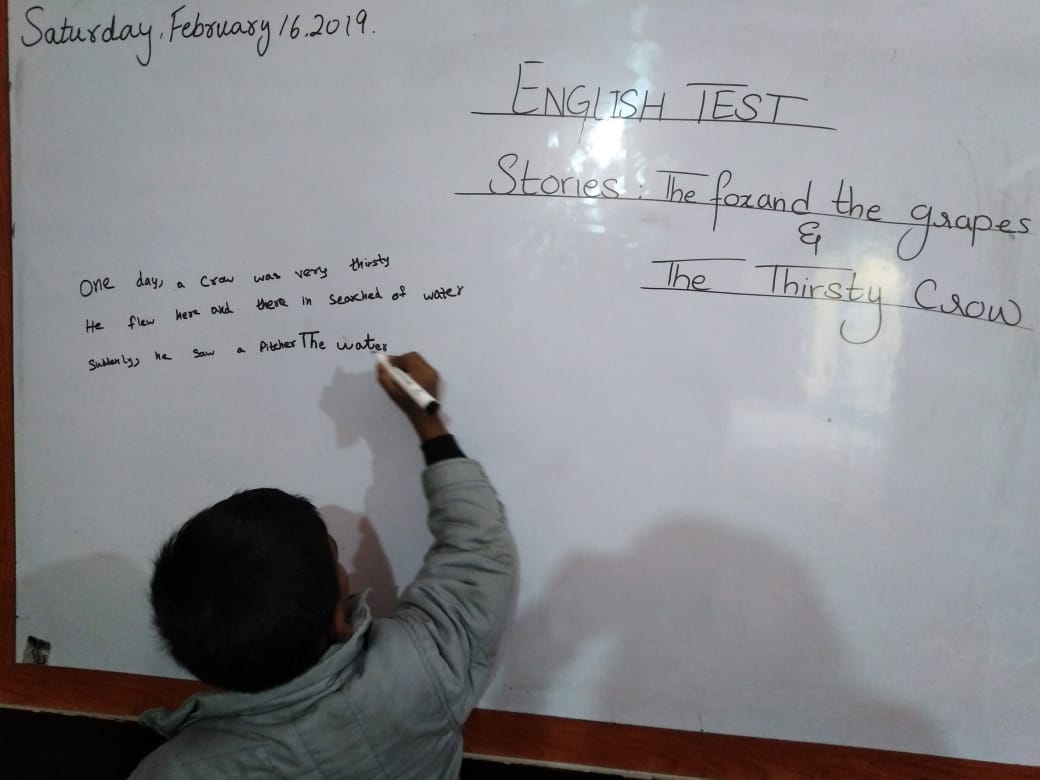 Saturday, February 16.2019.
ENGLISH TEST
Stories: The fox and the grapes
&
The Thirsty Crow
One day, a crow was very thirsty
He flew here and there in searched of water
Suddenly, he saw a Pitcher The water